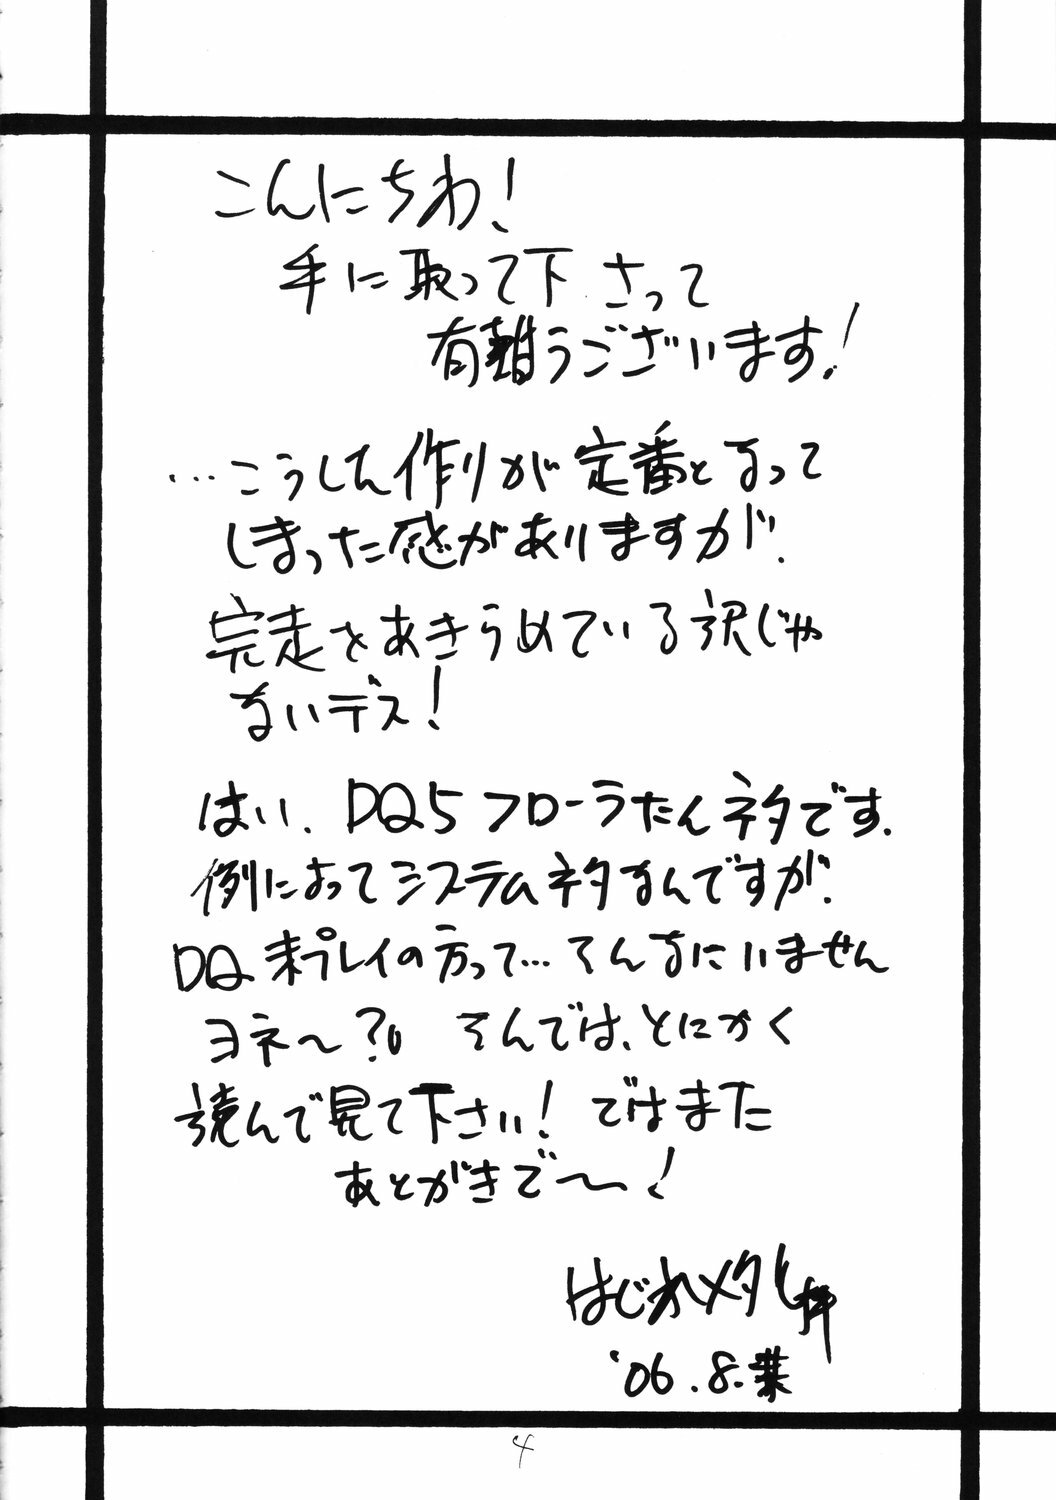 こんにちわ!
手に取って下さって
有難うございます!
…こうした作りが定番となって
しまった感がありますが.
完走をあきらめている訳じゃ
ないデス!
はい. DQ5フローラたんネタです.
例によってシステムネタなんですが.
DQ未プレイの方って…そんなにいません
ヨネ〜?。 そんでは、とにかく
読んで見て下さい! ではまた
あとがきで〜!
はじめメタル拝
'06.8.葉
4